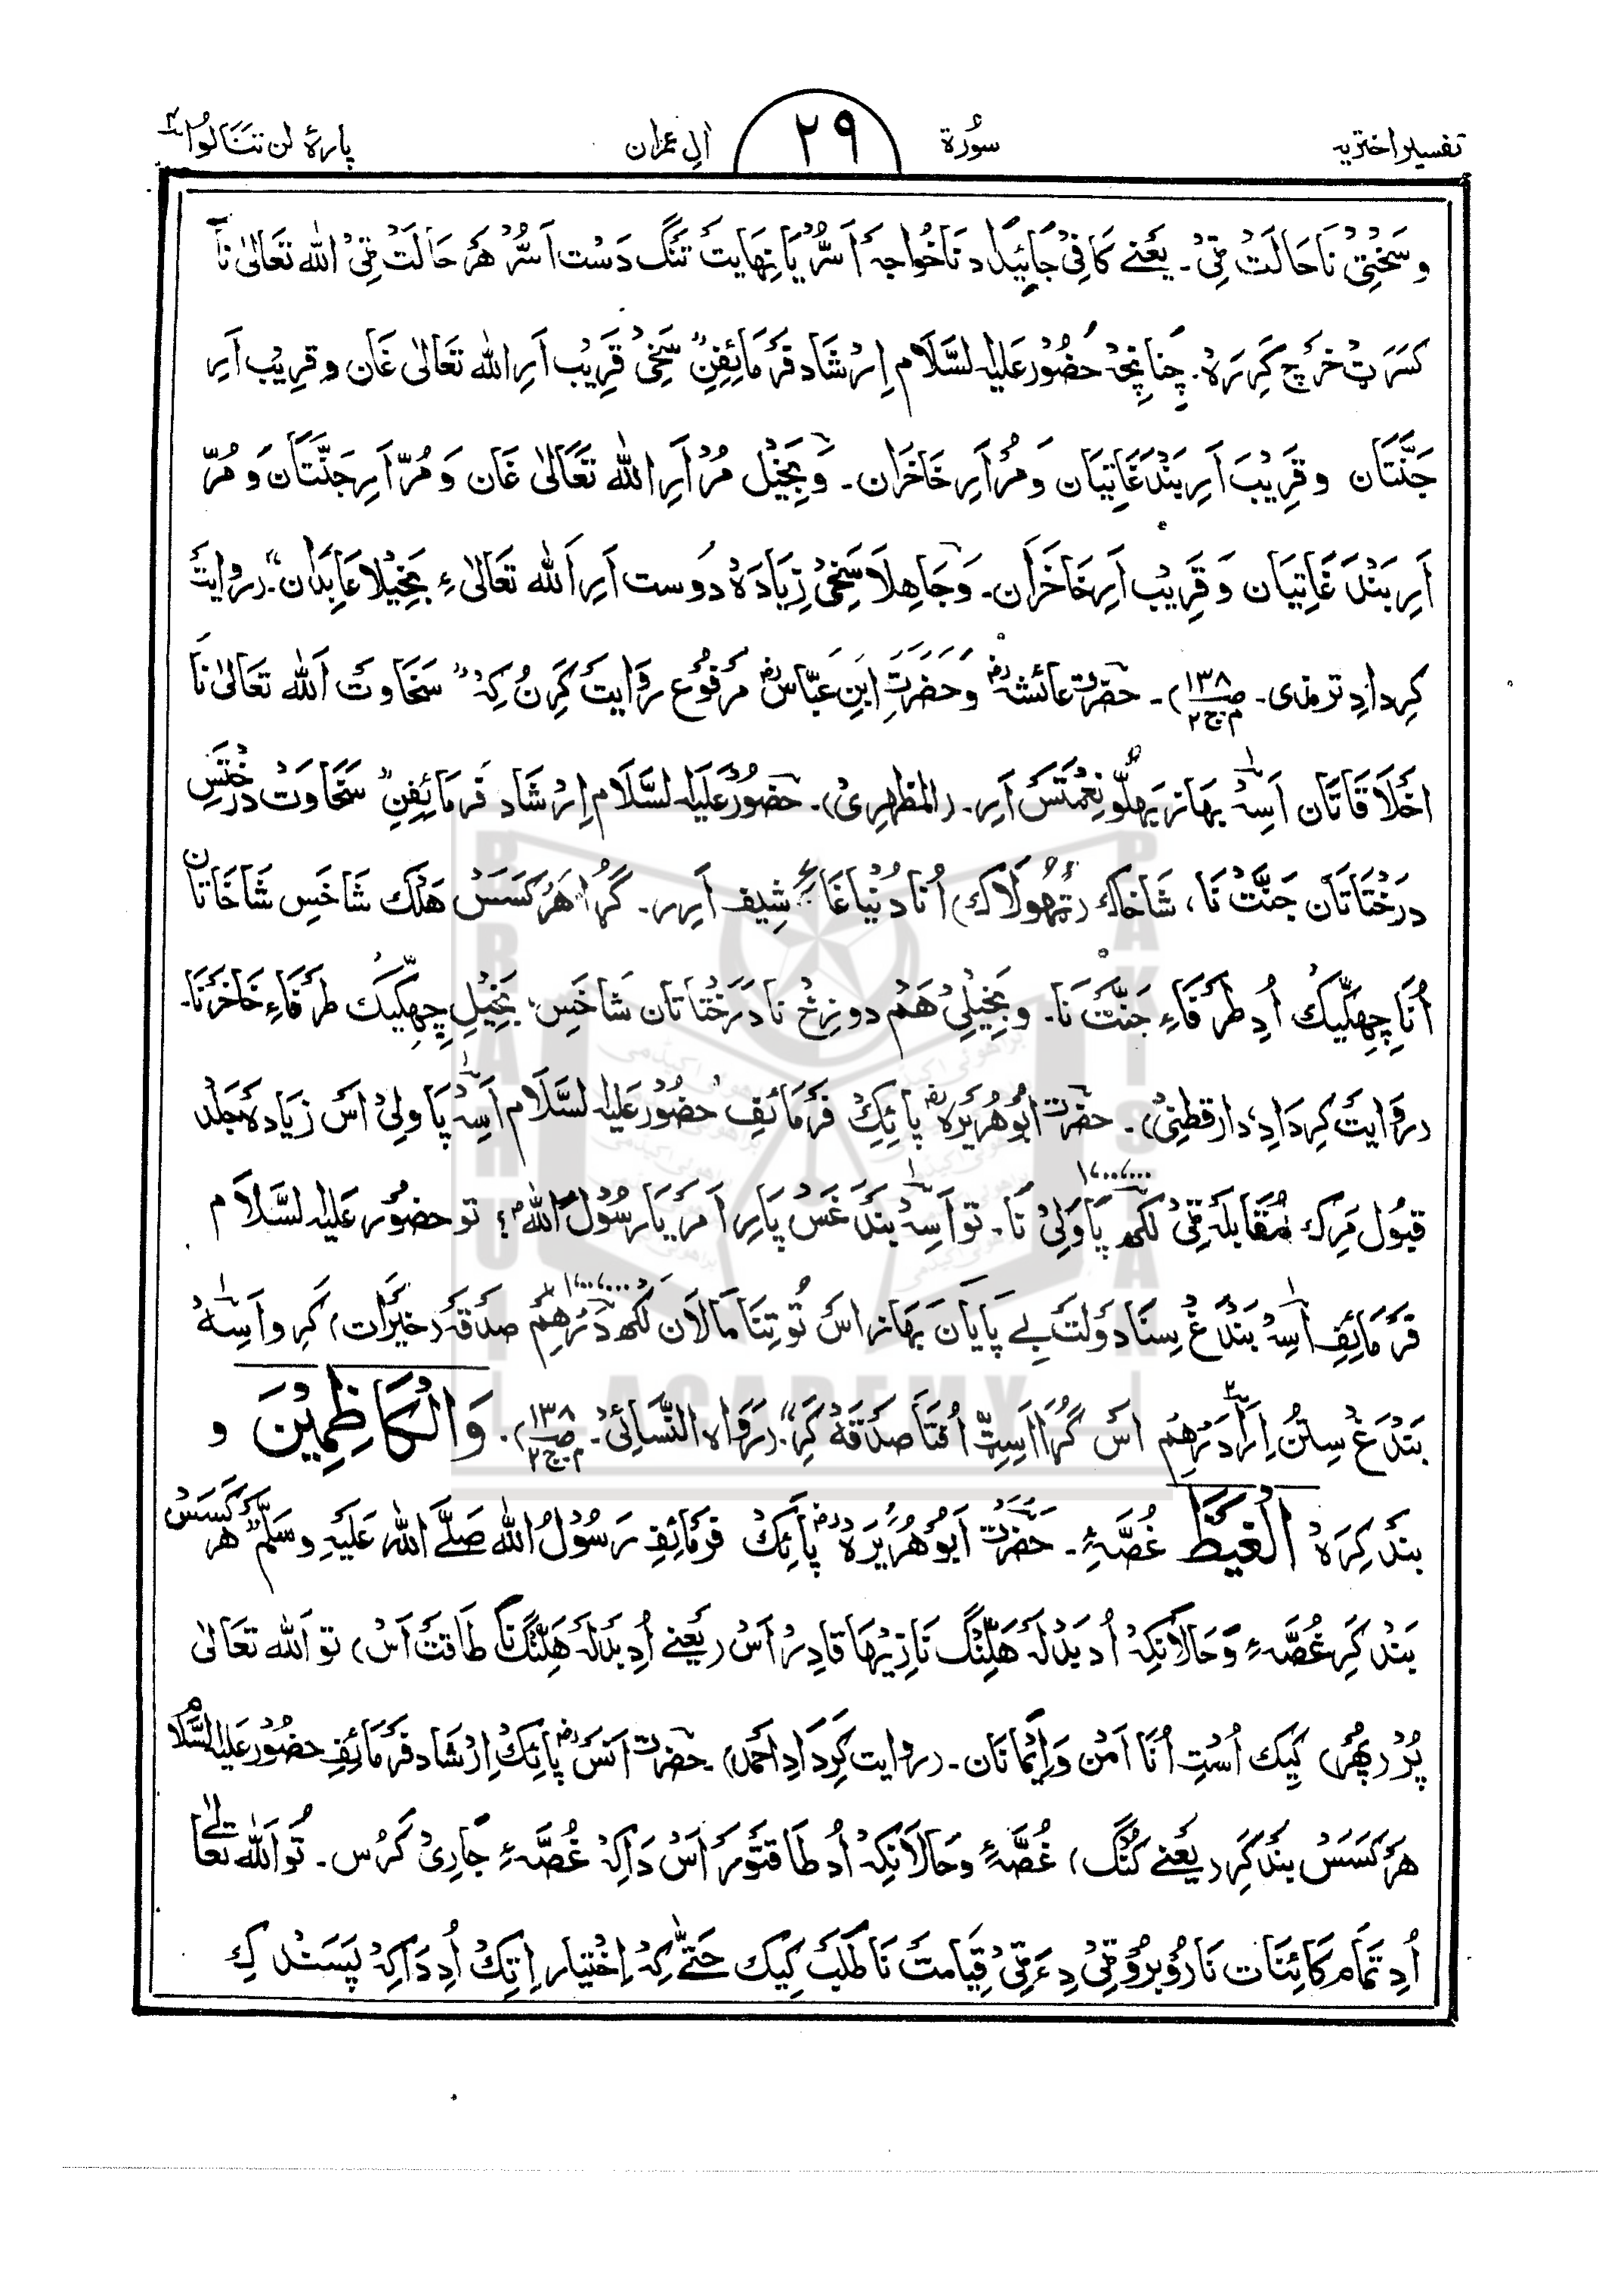 تفسیر اختریہ سُورة ۲۹ اٰلِ عمران پارۂ لن تنَالُوا ۴
و سَخْتِیْ نَا حَالَتْ ٹِیْ۔ یَعْنے کَافِیْ جَائِیْدَاد نَا خُواجہ اَسُّرْ یَا نِہَایت تَنگ دَسْت اَسُّرْ هَر حَالَتْ ٹِیْ اللہ تَعَالیٰ نَا
کَسَرَٹ خَرْچ کَرِرَہْ۔ چُنَانچہْ حُضُوْر عَلَیْہِ السَّلَام اِرْشَاد فَرْمَائِفِنْ "سَخِیْ قَرِیْب اَرِ اللہ تَعَالیٰ غَان و قَرِیْب اَرِ
جَنَّتَان و قَرِیْب اَرِ بَنْدَغَاتِیَان وَ مُر اَرِ خَاخَرَان۔ وَ بَخِیْل مُرْ اَرِ اللہ تَعَالیٰ غَان وَ مُرّ اَرِ جَنَّتَان وَ مُرّ
اَرِ بَنْدَغَاتِیَان وَ قَرِیْب اَرِ خَاخَرَان۔ وَ جَاهِلَا سَخِیْ زِیَادَہْ دُوست اَرِ اَللہ تَعَالیٰ ءِ بَخِیْلَا عَابِدَان"۔ (رِوایتَ
کِردادِ ترمذی۔ صـ ۱۳۸ م ج ۲)۔ حضرت عائشہ رض وَ حَضَرَتِ ابْنِ عَبَّاس رض مَرفُوْع رِوَایتْ کَرِنُ کِہْ "سَخَاوتْ اَللہ تَعَالیٰ نَا
اَخْلَاقَاتَان اَسِہْ بهَاز بَهلُّو نِعْمَتَس اَرِ۔ (المظہری)۔ حضُوْر عَلَیْہِ السَّلَام اِرْشَاد فَرْمَائِفِنِ "سَخَاوتْ دَرَخْتَسِ
دَرَخْتَاتَان جَنَّتْ نَا، شَاخاک (ٹہُولَاک) اُنَا دُنْیَاغَا شِیف اَرِر۔ گُڑا هَرْکَسَسْ هَلْک شَاخَسِ شَاخَاتَان
اُنَا چِهکِّیک اُدِ طَرَفَاءِ جَنَّتْ نَا۔ و بَخِیْلِیْ هَمْ دوزِخْ نَا دَرَخْتَاتَان شَاخَسِ، بَخِیْلِ چِهکِّیک طَرَفَاءِ خَاخَرْنَا۔
(رِوَایتْ کِردَادِ، دَارقطنی)۔ حضرت ابُوهُرَیْرَہ رض پَائِکْ فَرْمَائِفِ حُضُوْر عَلَیْہِ السَّلَام اَسِہْ پَاولِیْ اَسْ زِیَادَہْ جَلد
۱۰۰،۰۰۰
قبُول مَرِک مُقَابلہ ٹِیْ لَکھ پَاوَلِیْ نَا۔ تو اَسِہْ بَنْدَغَسْ پَارِ اَمَر یَا رسُوْل اللہ ص؟ تو حضُوْر عَلَیْہِ السَّلَام
۱۰۰،۰۰۰
فَرْمَائِفِ اَسِہْ بَنْدَغْ سِنَا دَولَتْ بے پَایَان بَهَاز اَسْ تُو تِنَا مَالَان لَکھ دَرْهِم صَدَقَہ (خَیْرَات) کَرِ و اَسِہْ
بَنْدَغْ سِتُن اِرَا دَرْهِم اَسْ گُڑا اَسِٹِ اُفْتَا صَدَقَہْ کَرِ"۔ (رَوَاہ النَّسَائِیْ۔ صـ ۱۳۸ م ج ۲)۔ وَالْکَاظِمِیْنَ و
بند کِرَہْ الْغَیْظَ غُصَّہءِ۔ حَضَرَت اَبُوهُرَیْرَہ رض پَائِکْ فَرْمَائِفِ رَسُوْلُ اللہ صَلَّی اللہ عَلَیْہِ وَسَلَّم "هَر کَسَسْ
بَنْد کَرِ غُصَّہءِ وَ حَالَانکِہْ اُد بَدَلہ هَلِّنْگ نَا زِیْهَا قَادِرْ اَسْ (یَعْنے اُدِ بَدَلہ هَلِّنْگ نَا طَاقَتْ اَسْ) تو اَللہ تَعَالیٰ
پُرْ (بهَر) کِیک اُسْتِ اُنَا اَمْن وَ اِیْمَانَان۔ (روایت کِردَادِ احمد)۔ حضرت اَنَسْ رض پَائِکْ اِرْشَاد فَرْمَائِفِ حضُوْر عَلَیْہِ السَّلَام
هَرکَسَسْ بند کَرِ (یَعْنے کُنگ) غُصَّہءِ و حَالَانکِہْ اُد طَاقَتْوَر اَسْ دَاکِہْ غُصَّہءِ جَارِیْ کَرُس۔ تُو اَللہ تَعَالٰے
اُدِ تَمَام کَائِنَات نَا رُوْبرُوْ ٹِیْ دِءَ ٹِیْ قِیَامَتْ نَا طَلَبْ کِیک حَتّٰے کِہْ اِخْتِیَار اِتِکْ اُدِ دَاکِہْ پَسَنْد کِ
BRAHUI ACADEMY PAKISTAN